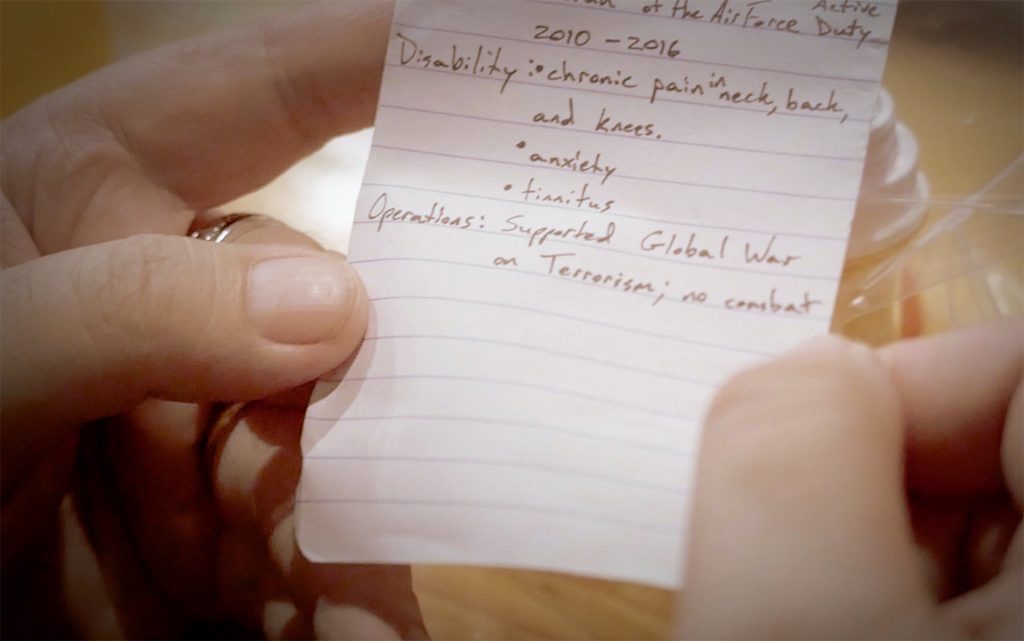 of the Air Force Active
Duty
2010 - 2016
Disability: • chronic pain in neck, back,
and knees.
• anxiety
• tinnitus
Operations: Supported Global War
on Terrorism; no combat